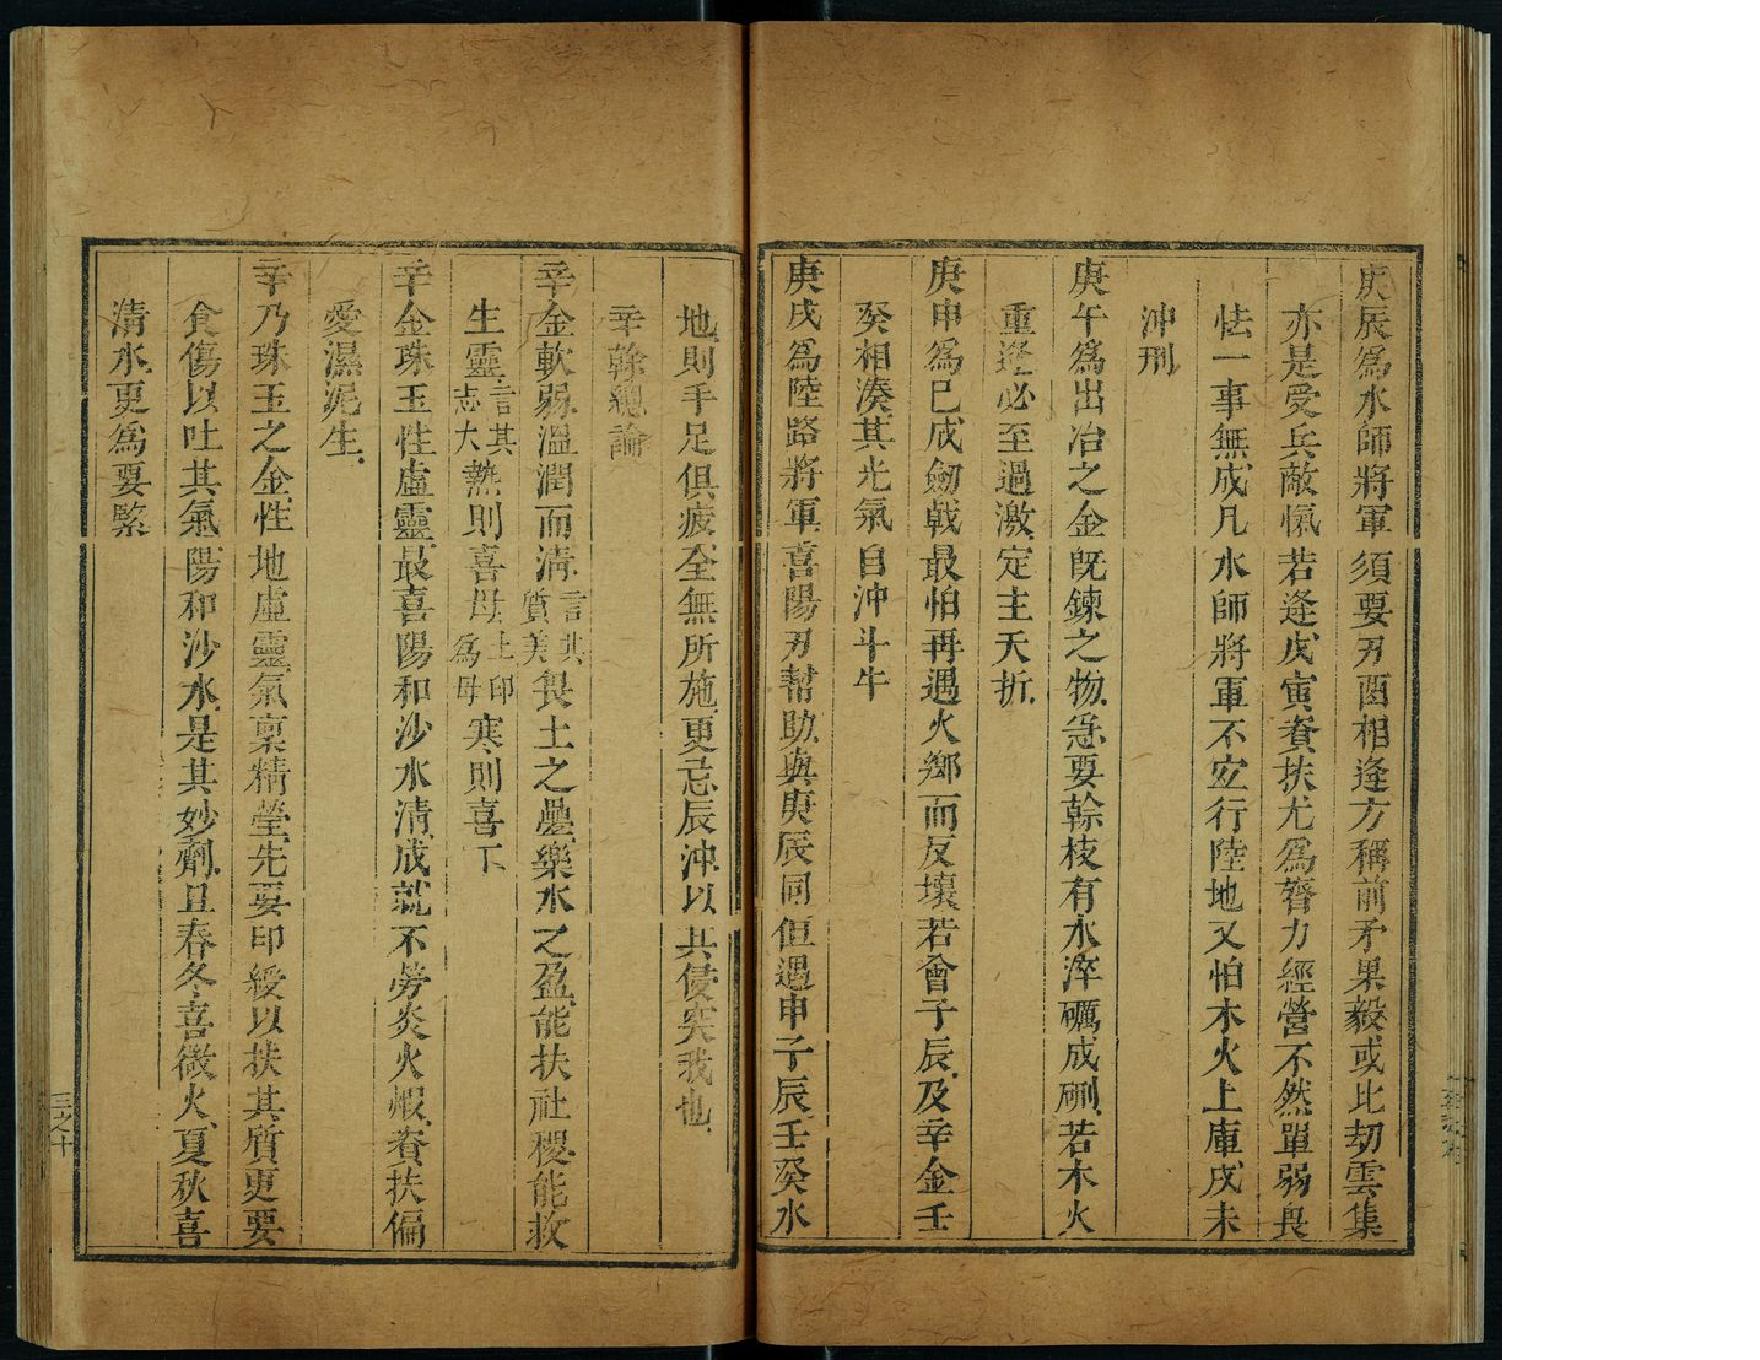 庚辰為水師將軍須要刃酉相逢方稱前矛果毅或比刧雲集
亦是受兵敵愾若逢戊寅資扶尤為膂力經營不然單弱畏
怯一事無成凡水師將軍不宜行陸地又怕木火上庫戌未
沖刑
庚午為出冶之金既鍊之物急要幹枝有水淬礪成刷若木火
重逢必至過激定主夭折
庚申為已成劒戟最怕再遇火鄉而反壞若會子辰及辛金壬
癸相湊其光氣自沖斗牛
庚戌為陸路將軍喜陽刃幫助與庚辰同但遇申子辰壬癸水
地則手足俱疲全無所施更忌辰沖以其侵突我也
辛幹總論
辛金軟弱溫潤而清言其質美畏土之疊樂水之盈能扶社稷能救
生靈言其志大熱則喜母土印為母寒則喜丁
辛金珠玉性虛靈最喜陽和沙水清成就不勞炎火煅資扶偏
愛濕泥生
辛乃珠玉之金性地虛靈氣稟精瑩先要印綬以扶其質更要
食傷以吐其氣陽和沙水是其妙劑且春冬喜微火夏秋喜
清水更為要緊
三之十